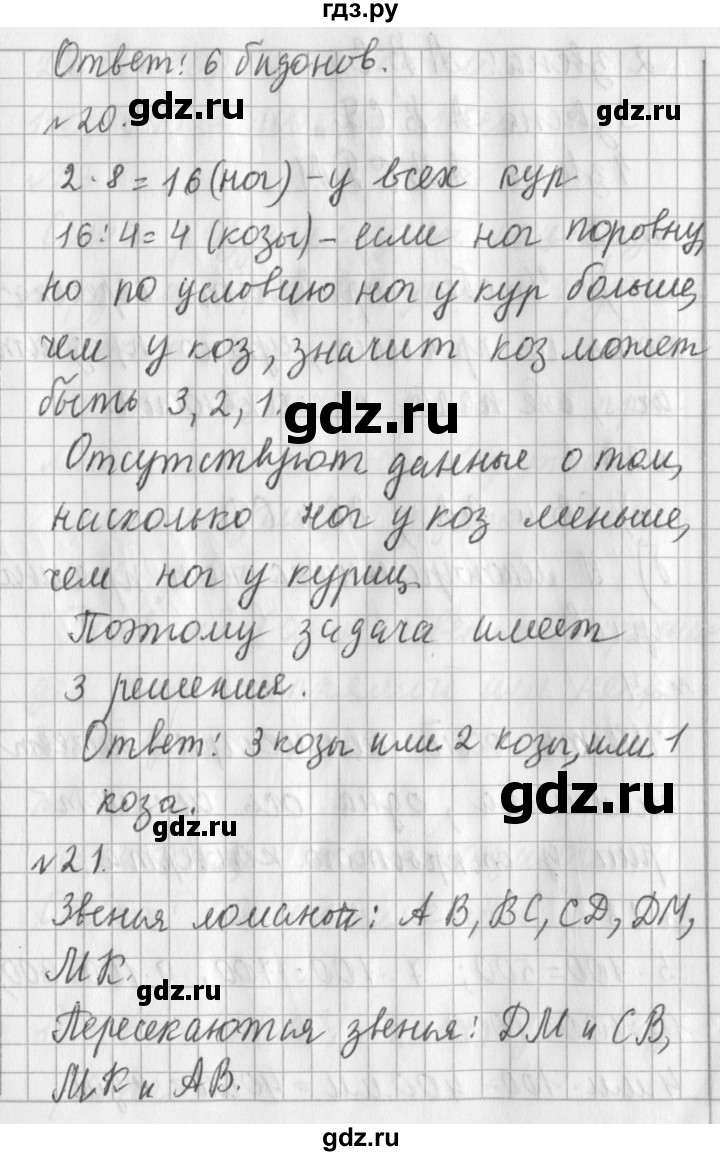 гдз.ру
Ответ: 6 бизонов.
gdz.ru
gdz.ru
№20.
2·8=16(ног)-у всех кур
16:4=4 (козы)-если ног поровну,
но по условию ног у кур больше,
чем у коз, значит коз может
быть 3, 2, 1.
gdz.ru
Отсутствуют данные о том,
насколько ног у коз меньше,
чем ног у куриц.
Поэтому задача имеет
3 решения.
Ответ: 3 козы или 2 козы, или 1
коза.
gdz.ru
gdz.ru
№21.
Звенья ломаной: АВ, ВС, СD, DМ,
МК.
gdz.ru
Пересекаются звенья: DМ и СВ,
МК и АВ.
gdz.ru